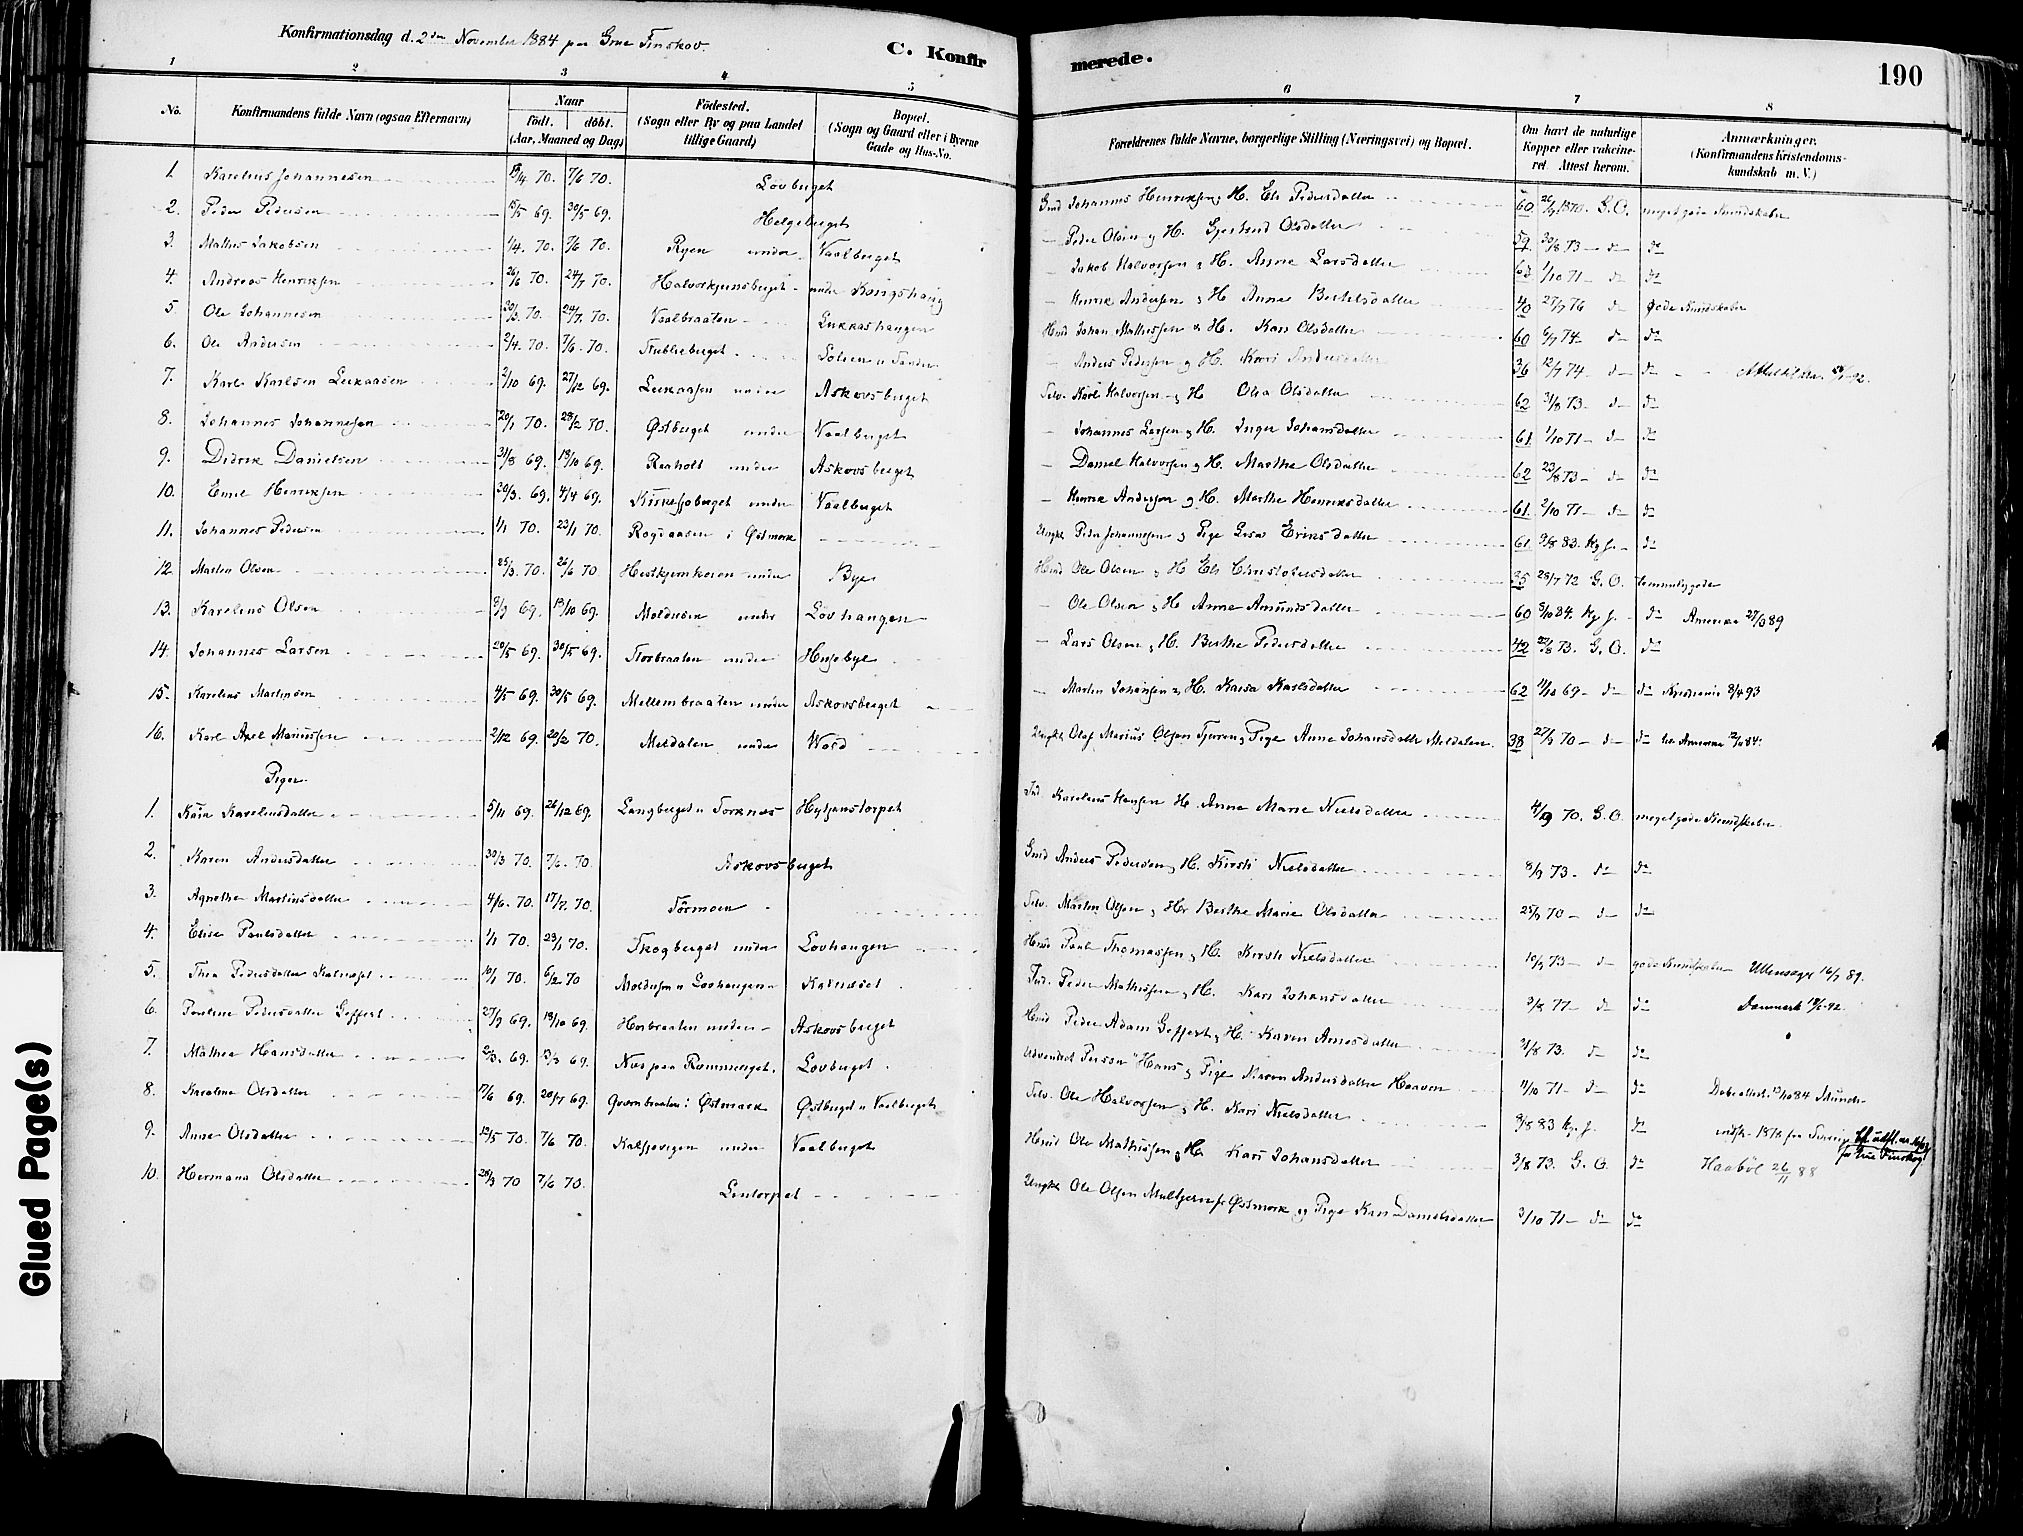 Konfirmationsdag d. 2den November 1884 paa Grue Finskov.
C. Konfirmerede.
190
1 2 3 4 5 6 7 8
No. Konfirmandens fulde Navn (ogsaa Efternavn) Naar födt. döbt. (Aar, Maaned og Dag) Födested. (Sogn eller By og paa Landet tillige Gaard) Bopæl. (Sogn og Gaard eller i Byerne Gade og Hus-No. Forældrenes fulde Navne, borgerlige Stilling (Næringsvei) og Bopæl. Om havt de naturlige Kopper eller vakcineret. Attest herom. Anmærkninger. (Konfirmandens Kristendomskundskab m. V.)
1. Karelius Johannesen 70. 7/6 70. Lövberget Johannes Henriksen og H. Eli Pedersdatter 60 1870. G.O. meget gode Kundskaber
2. Peder Pedersen 15/5 69. 30/5 69. Helgeberget Peder Olsen og H. Gjertrud Olsdatter 59 30/8 73 — do do
3. Mathis Jakobsen 1/4. 70. 7/6 70. Ryen under Vaalberget Jakob Halvorsen og H. Anne Larsdatter 1/10 71 — do do
4. Andreas Henriksen 26/6 70. 24/7 70. under Kongshaug Henrik Andersen og H. Anne Bertelsdatter 40 27/7 76 do gode Kundskaber
5. Ole Johannesen 70. 24/7. 70. Vaalbraaten Lukkashaugen Johan Mathissen & H. Kari Olsdatter 60 6/7 74 — do do
6. Ole Andersen 2/4. 70. 7/6. 70. Stubbeberget Anders Pedersen og H. Kari Andersdatter 36 12/7 74 — do do
7. Karl Karlsen Leekaasen 2/10 69. 27/12 69. Leekaasen under Askovsberget Selv. Karl Halvorsen og H Olea Olsdatter 62 31/8 73. do do
8. Johannes Johannesen 20/1 70. 28/2 70. Östberget under Vaalberget Johannes Larsen og H. Inger Johansdatter 61 1/10 71 — do do
9. Didrik Danielsen 31/8 69. 18/10 69. Raaholt under Askovsberget Daniel Halvorsen og H. Marthe Olsdatter 62 23/8 73 — do do
10. Emil Henriksen 30/3. 69. 4/4 69. Kirkesjøberget under Vaalberget Henrik Andersen og H. Marthe Henriksdatter 61 2/10 71 — do do
11. Johannes Pedersen 1/1 70. 23/1 70. Rogdaasen i Östmark Ungkl. Peder Johannesen og Pige Lisa Eriksdatter 61 9/8 83. Kg f. do
12. Martin Olsen 25/3. 70. 26/6 70 under Bye Ole Olsen og H Eli Christophersdatter 35 28/7 72 G.O. temmelig gode
13. Karelius Olsen 69. 18/10 69. Moldusen under Lövhaugen Ole Olsen og H Anne Amundsdatter 60 8/10 84. Kg f. do Amerika 27/3 89
14. Johannes Larsen 20/5 69. 30/5 69. Storbraaten under Husebye Lars Olsen og H. Berthe Pedersdatter 42 73. G.O. do
15. Karelius Martinsen 4/5 69. 30/5 69. Mellembraaten under Askovsberget Martin Johansen og H. Kaisa Karlsdatter 62 11/10 69 — do do Kristiania 8/4 93
16. Karl Axel Mariussen 2/12 69. 20/2 70. Meldalen under Wold Ungkl. Olof Marius Olsen og Pige Anne Johansdatter Meldalen 38 27/9 70 — do do til Amerika 84.
Piger.
1. Kaja Karelinsdatter 5/11 69. 26/12 69. Langberget u Torknæs Hytjanstorpet Ind. Karelius Hansen H. Anne Marie Nielsdatter 70. G.O. meget gode Kundskaber
2. Karen Andersdatter 30/3 70. 7/6. 70. Askovsberget Anders Pedersen og H. Kirsti Nielsdatter 8/9 73. do do
3. Agnethe Martinsdatter 4/6. 70. 17/7. 70. Törmoen Selv. Martin Olsen og H. Berthe Marie Olsdatter 25/9 70 — do do
4. Elise Paulsdatter 1/1 70. 23/1 70. Skogberget under Lovhaugen Paul Thomassen og H. Kirsti Nielsdatter 10/9 73 — do gode Kundskaber Ullensager 16/7 89.
5. Thea Pedersdatter Kalneset 10/1 70. 6/2 70 Moldusen u Lovhaugen Kalneset Ind. Peder Mathissen og H. Kari Johansdatter 3/8 77 — do do Danmark
6. Pauline Pedersdatter Geffert 27/9 69. 18/10 69. Horbraaten under Askovsberget Peder Adam Geffert og H. Karen Arnesdatter 31/8 73. do do
7. Mathea Hansdatter 69. 69. Næs paa Rommenget. Lövberget Persson Hans og Pige Maren Andersdatter Haaven 11/10 71 — do do Dobsattest. 84
8. Karoline Olsdatter 17/6 69. 20/7 69. Qværnbraaten i Östmark Östberget u Vaalberget Selv. Ole Halvorsen og H. Kari Nielsdatter 9/8 83 Kg. f. do
9. Anne Olsdatter 70. 7/6 70. under Vaalberget Ole Mathissen og H. Kari Johansdatter 3/8 73. G.O. do Haaböl 26/11 88
10. Hermana Olsdatter 28/3 70 7/6 70. Lintorpet Ungkl. Ole Olsen Östmark og Pige Kari Danielsdatter 3/10 71 — do do
Glued Page(s)